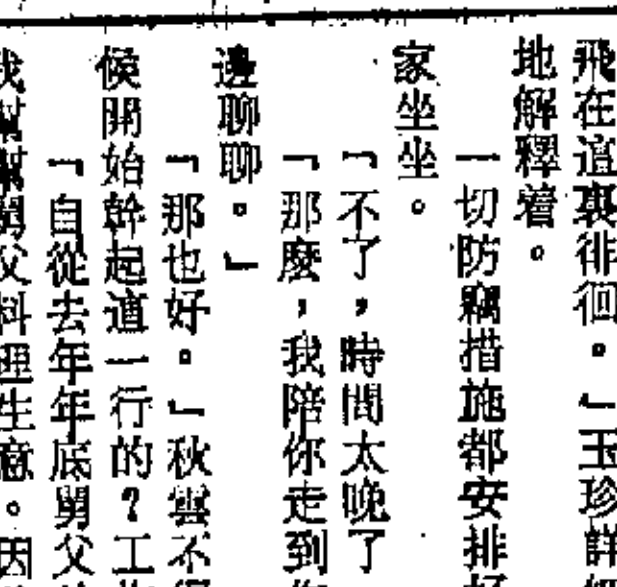 飛在這裏徘徊。」玉珍詳細
地解釋着。
一切防竊措施都安排好
家坐坐。
「不了，時間太晚了
「那麽，我陪你走到
邊聊聊。」
「那也好。」秋雲不
候開始幹起這一行的？工
「自從去年年底舅父
我幫幫舅父料理生意。因